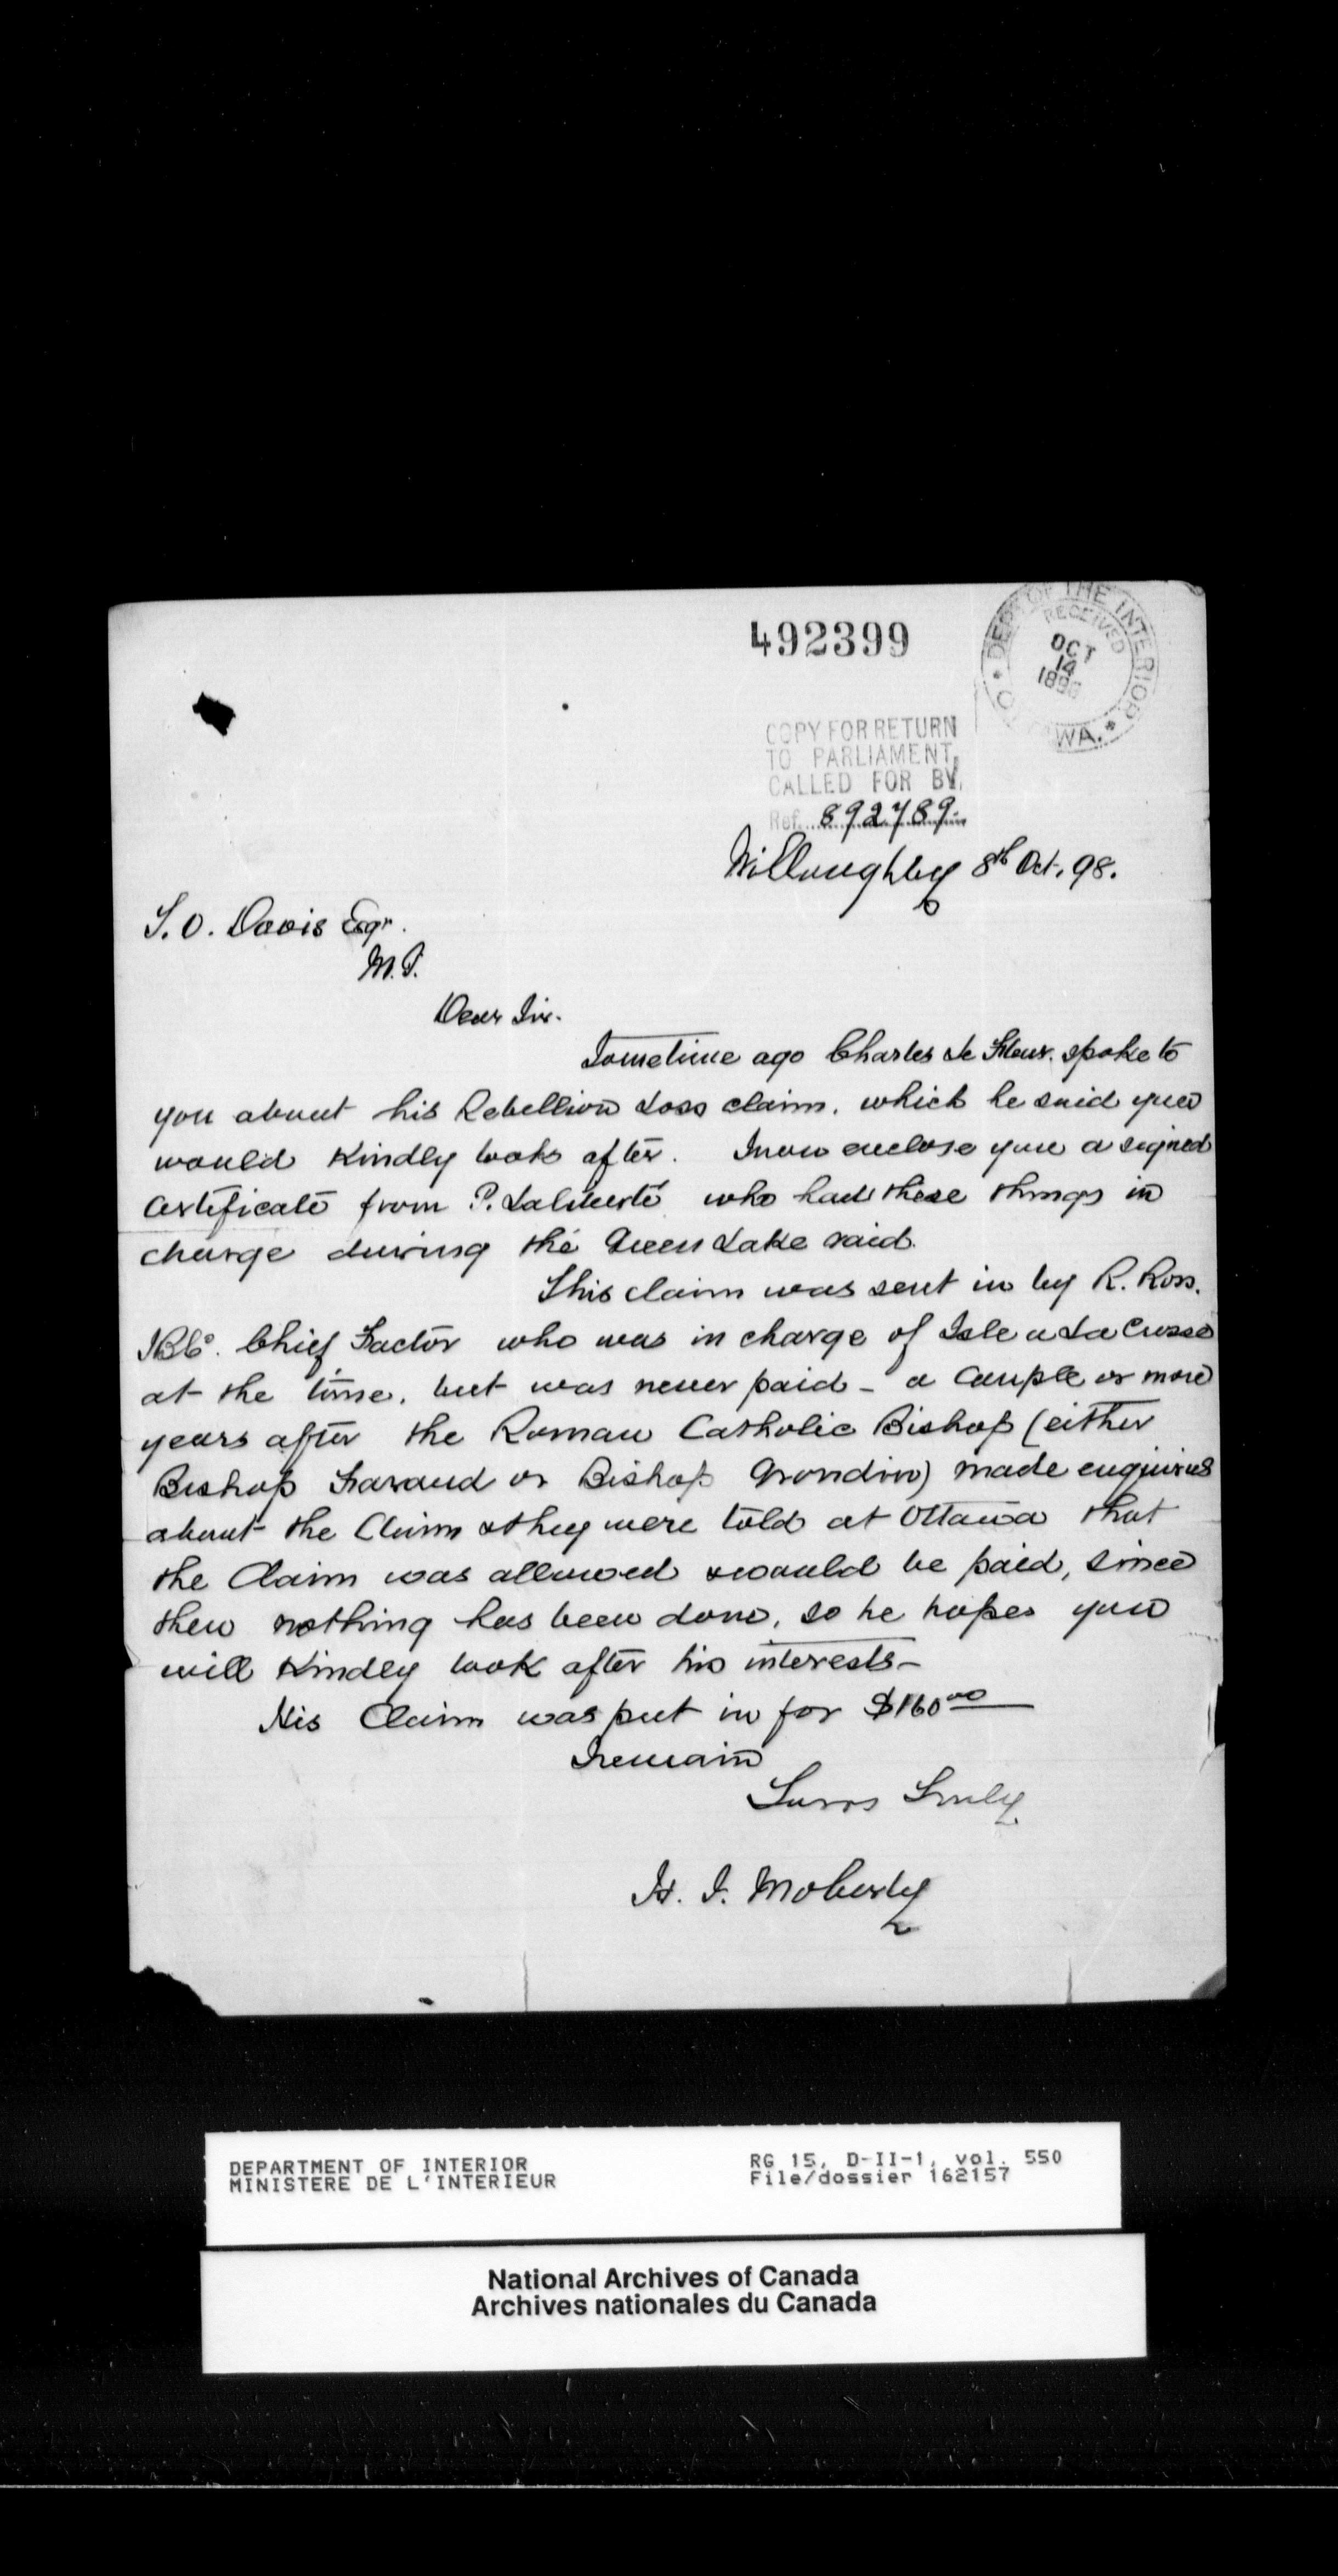 492399
DEPT OF THE INTERIOR
RECEIVED
OCT
14
1898
O WA.
COPY FOR RETURN
TO PARLIAMENT,
CALLED FOR BY,
Ref. 892789
Willoughby 8th Oct. 98.
T. O. Davis Esqr.
M.P.
Dear Sir.
Sometime ago Charles La Fleur. spoke to
you about his Rebellion Loss claim. which he said you
would Kindly look after. I now enclose you a signed
Certificate from P. Laliberté who had these things in
charge during the Green Lake raid.
This claim was sent in by R. Ross.
HBCo. Chief Factor who was in charge of Isle a La Crosse
at the time. but was never paid - a Couple or more
years after the Roman Catholic Bishop (either
Bishop Faraud or Bishop Grondin) made enquiries
about the Claim & they were told at Ottawa that
the Claim was allowed & would be paid, since
then nothing has been done, so he hopes you
will Kindly look after his interests -
His Claim was put in for $160 00
I remain
Yours Truly
H. J. Moberly
DEPARTMENT OF INTERIOR
MINISTERE DE L'INTERIEUR
RG 15, D-II-1, vol. 550
File/dossier 162157
National Archives of Canada
Archives nationales du Canada